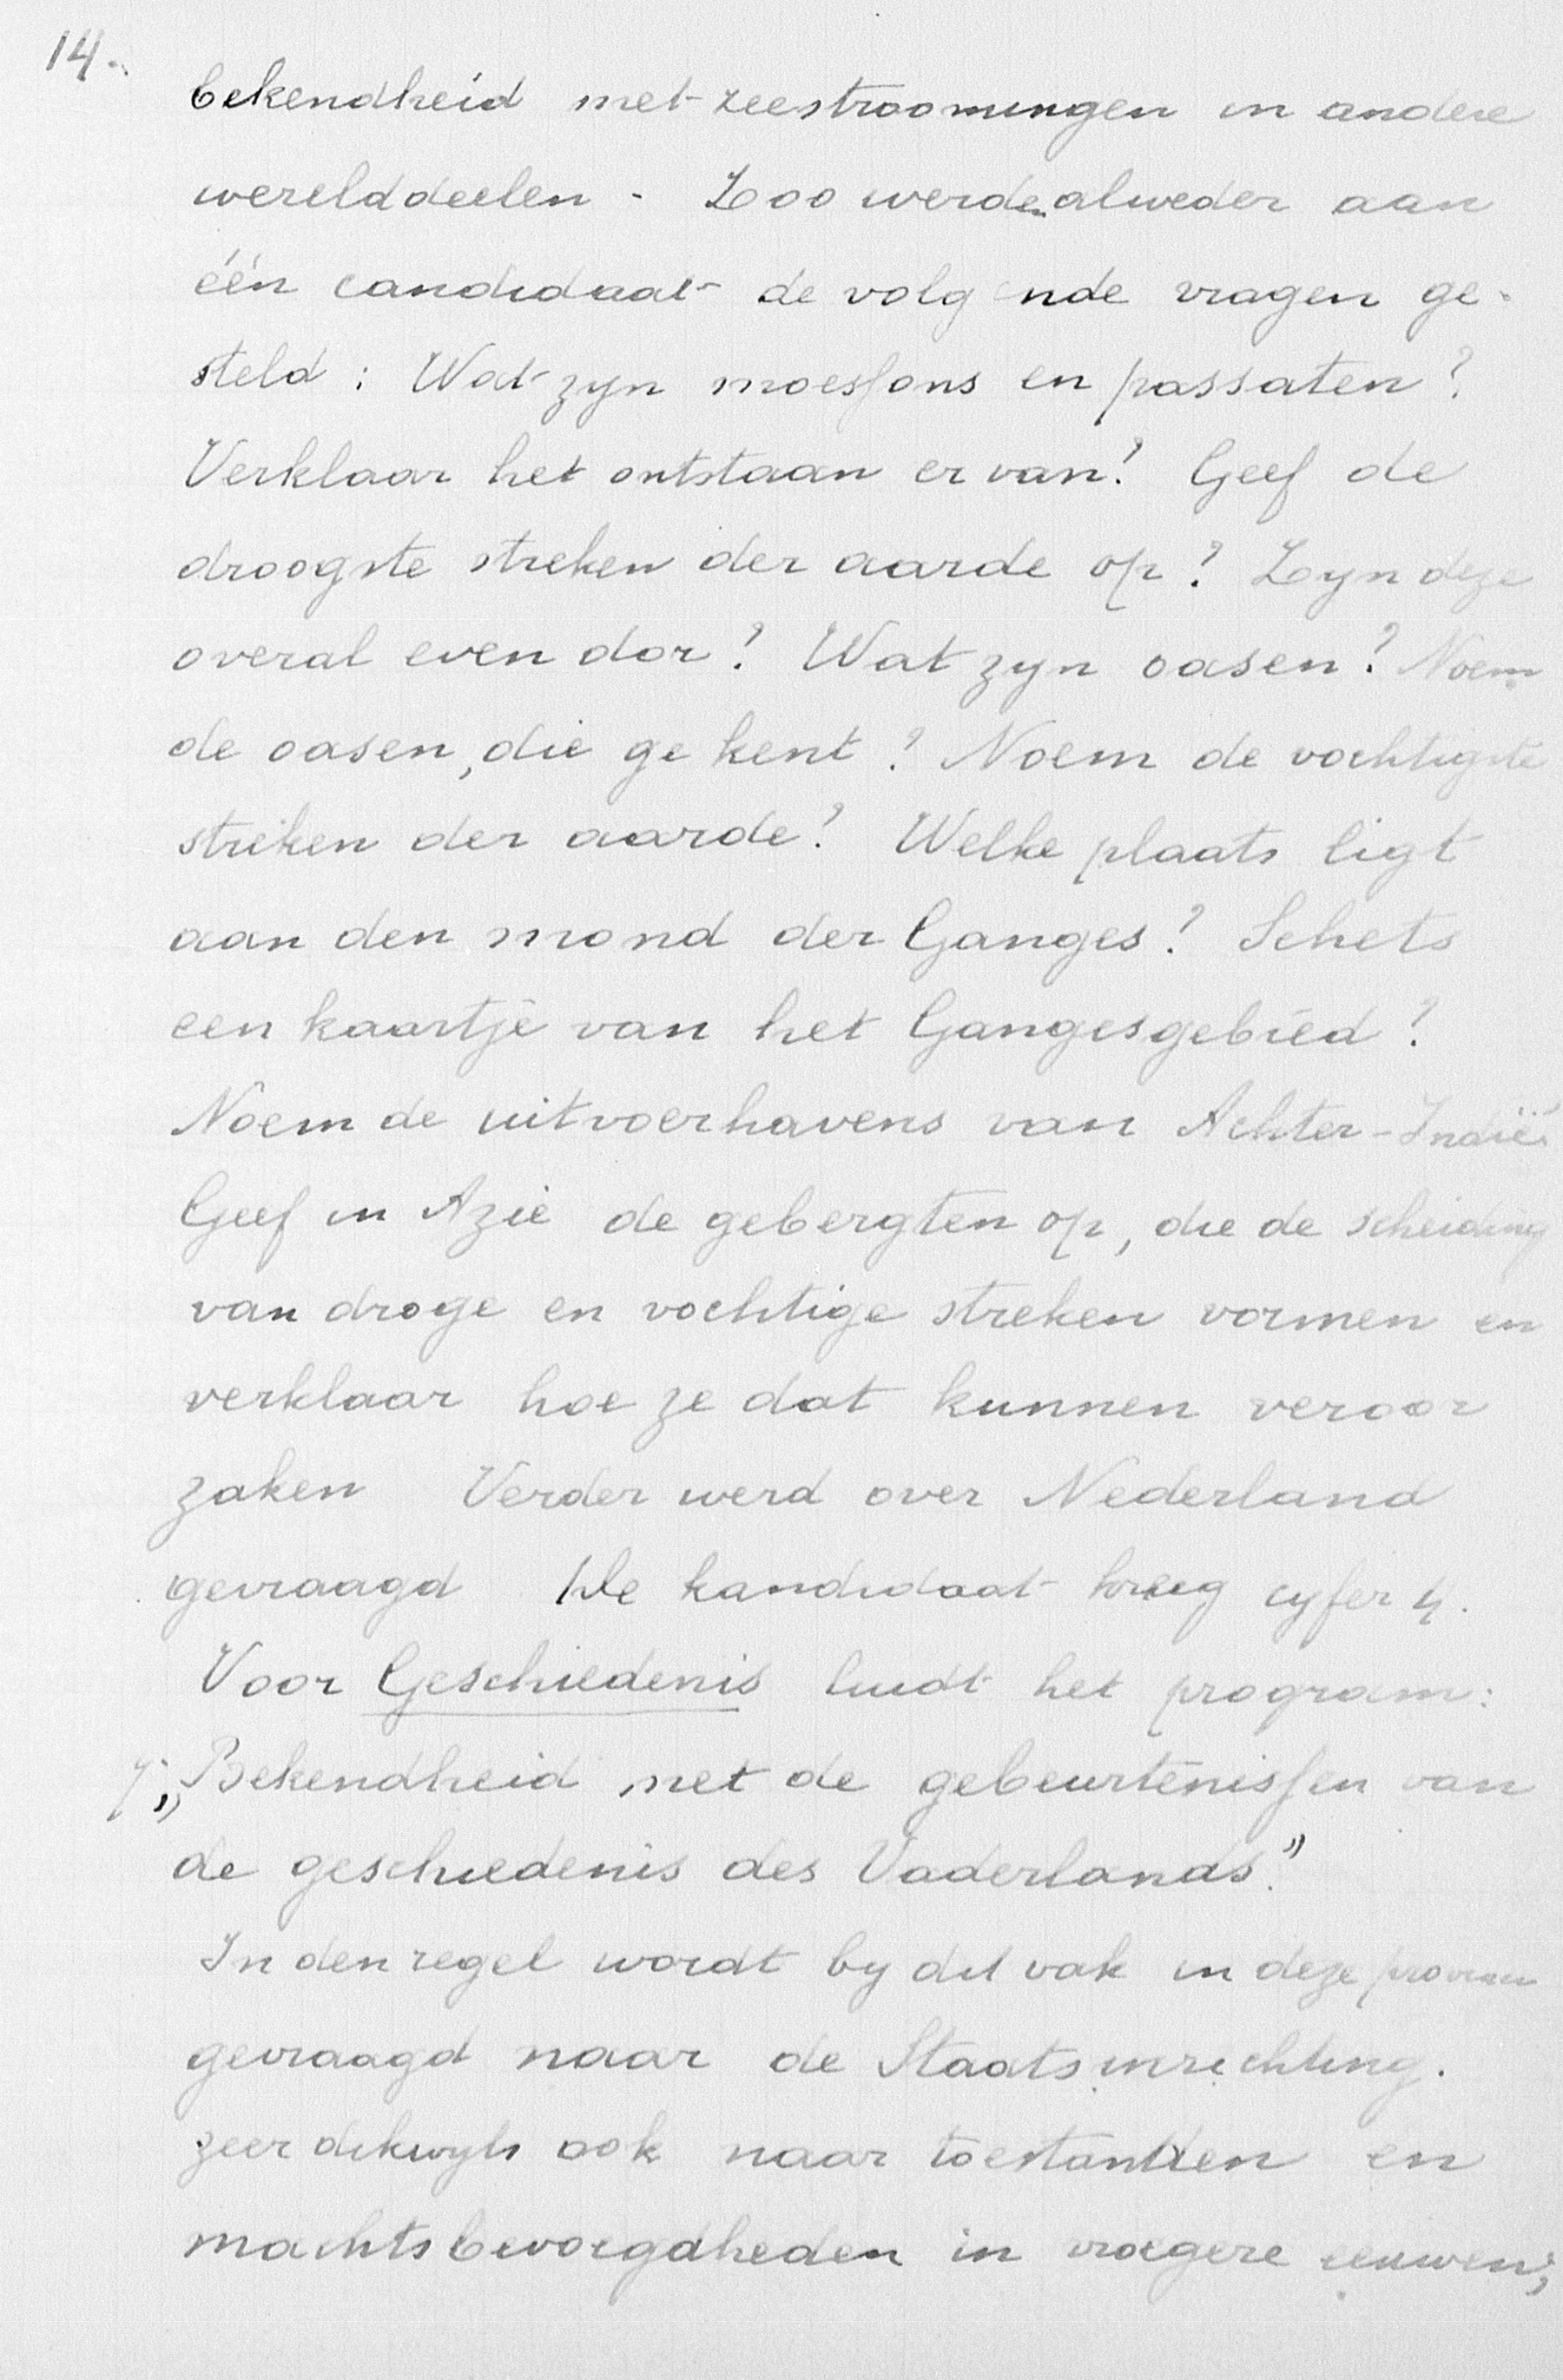 14.
bekendheid met zeestroomingen in andere
werelddeelen - Zoo werden alweder aan
één candidaat de volgende vragen ge-
steld: Wat zyn moessons en passaten?
Verklaar het ontstaan er van? Geef de
droogste streken der aarde op? Zyn deze
overal even dor? Wat zyn oasen? Noem
de oasen, die ge kent? Noem de vochtigste
streken der aarde? Welke plaats ligt
aan den mond der Ganges? Schets
een kaartje van het Gangesgebied?
Noem de uitvoerhavens van Achter-Indië.
Geef in Azië de gebergten op, die de scheiding
van droge en vochtige streken vormen en
verklaar hoe ze dat kunnen veroor
zaken Verder werd over Nederland
gevraagd De kandidaat kreeg cyfer 4.
Voor Geschiedenis luidt het program:
„Bekendheid met de gebeurtenissen van
de geschiedenis des Vaderlands."
In den regel wordt by dit vak in deze provincie
gevraagd naar de Staatsinrichting.
zeer dikwyls ook naar toestanden en
machtsbevoegdheden in vroegere eeuwen;